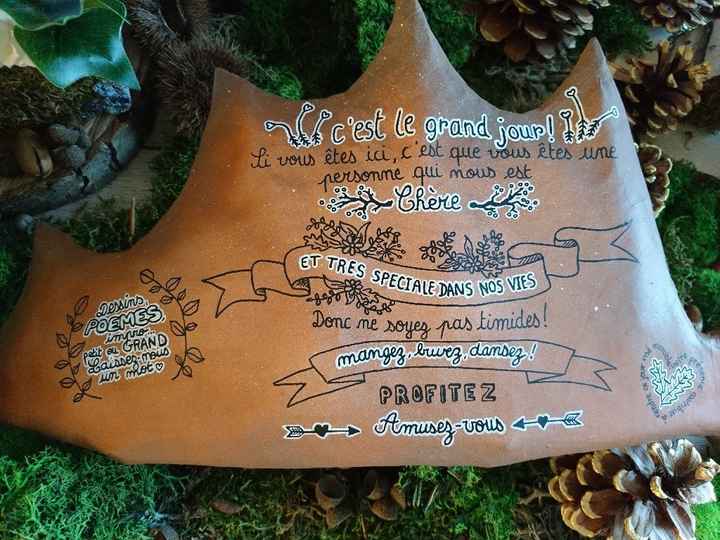 c'est le grand jour!
Si vous êtes ici, c'est que vous êtes une
personne qui nous est
Chère
ET TRES SPECIALE DANS NOS VIES
Donc ne soyez pas timides!
mangez, buvez, dansez!
PROFITEZ
Amusez-vous
Dessins,
POÈMES,
impro-
petit ou GRAND
Laissez-nous
un mot ♡